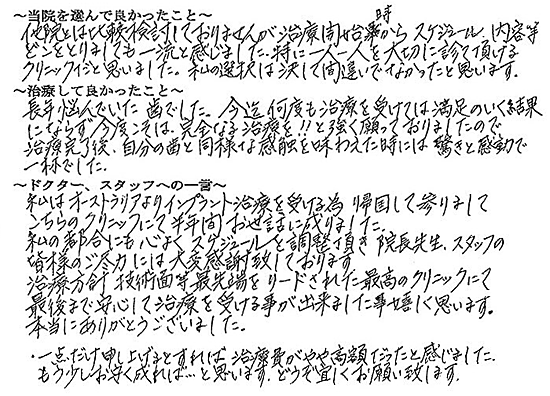 ～当院を選んで良かったこと～
他院とは比較検討しておりませんが治療開始時からスケジュール、内容等
どこをとりましても一流と感じました。特に一人一人を大切に診て頂ける
クリニックだと思いました。私の選択は決して間違いでなかったと思います。
～治療して良かったこと～
長年悩んでいた歯でした。今迄何度も治療を受けては満足のいく結果
にならず、今度こそは、完全なる治療を!!と強く願っておりましたので
治療完了後、自分の歯と同様な感触を味わえた時には驚きと感動で
一杯でした。
～ドクター、スタッフへの一言～
私はオーストラリアよりインプラント治療を受ける為帰国して参りまして
こちらのクリニックにて半年間お世話に成りました。
私の都合にも心よくスケジュールを調整頂き院長先生、スタッフの
皆様のご尽力には大変感謝致しております
治療方針、技術面等最先端をリードされた最高のクリニックにて
最後まで安心して治療を受ける事が出来ました事嬉しく思います。
本当にありがとうございました。
・一点だけ申し上げるとすれば、治療費がやや高額だったと感じました。
もう少しお安く成れば…と思います。どうぞ宜しくお願い致します。